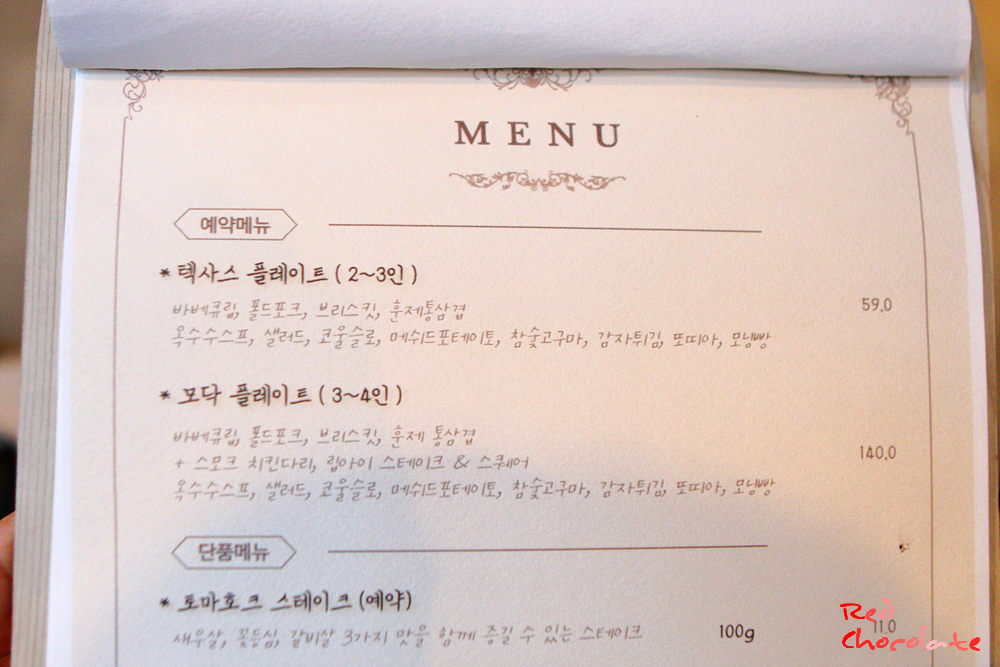 MENU
예약메뉴
* 텍사스 플레이트 ( 2~3인 )
바베큐립, 폴드포크, 브리스킷, 훈제통삼겹
59.0
옥수수스프, 샐러드, 코울슬로, 메쉬드포테이토, 참숯고구마, 감자튀김, 또띠아, 모닝빵
* 모닥 플레이트 ( 3~4인 )
바베큐립, 폴드포크, 브리스킷, 훈제 통삼겹
+ 스모크 치킨다리, 립아이 스테이크 & 스퀘어
140.0
옥수수스프, 샐러드, 코울슬로, 메쉬드포테이토, 참숯고구마, 감자튀김, 또띠아, 모닝빵
단품메뉴
* 토마호크 스테이크 (예약)
새우살, 꽃등심, 갈비살 3가지 맛을 함께 즐길 수 있는 스테이크 100g 11.0
Red
Chocolate